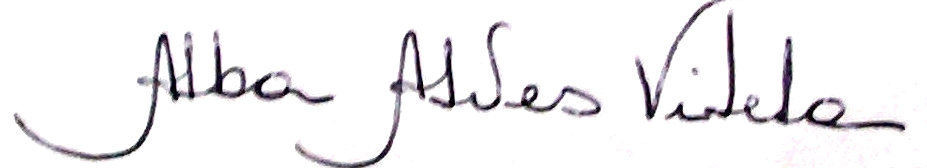 Alba Alves Vilela